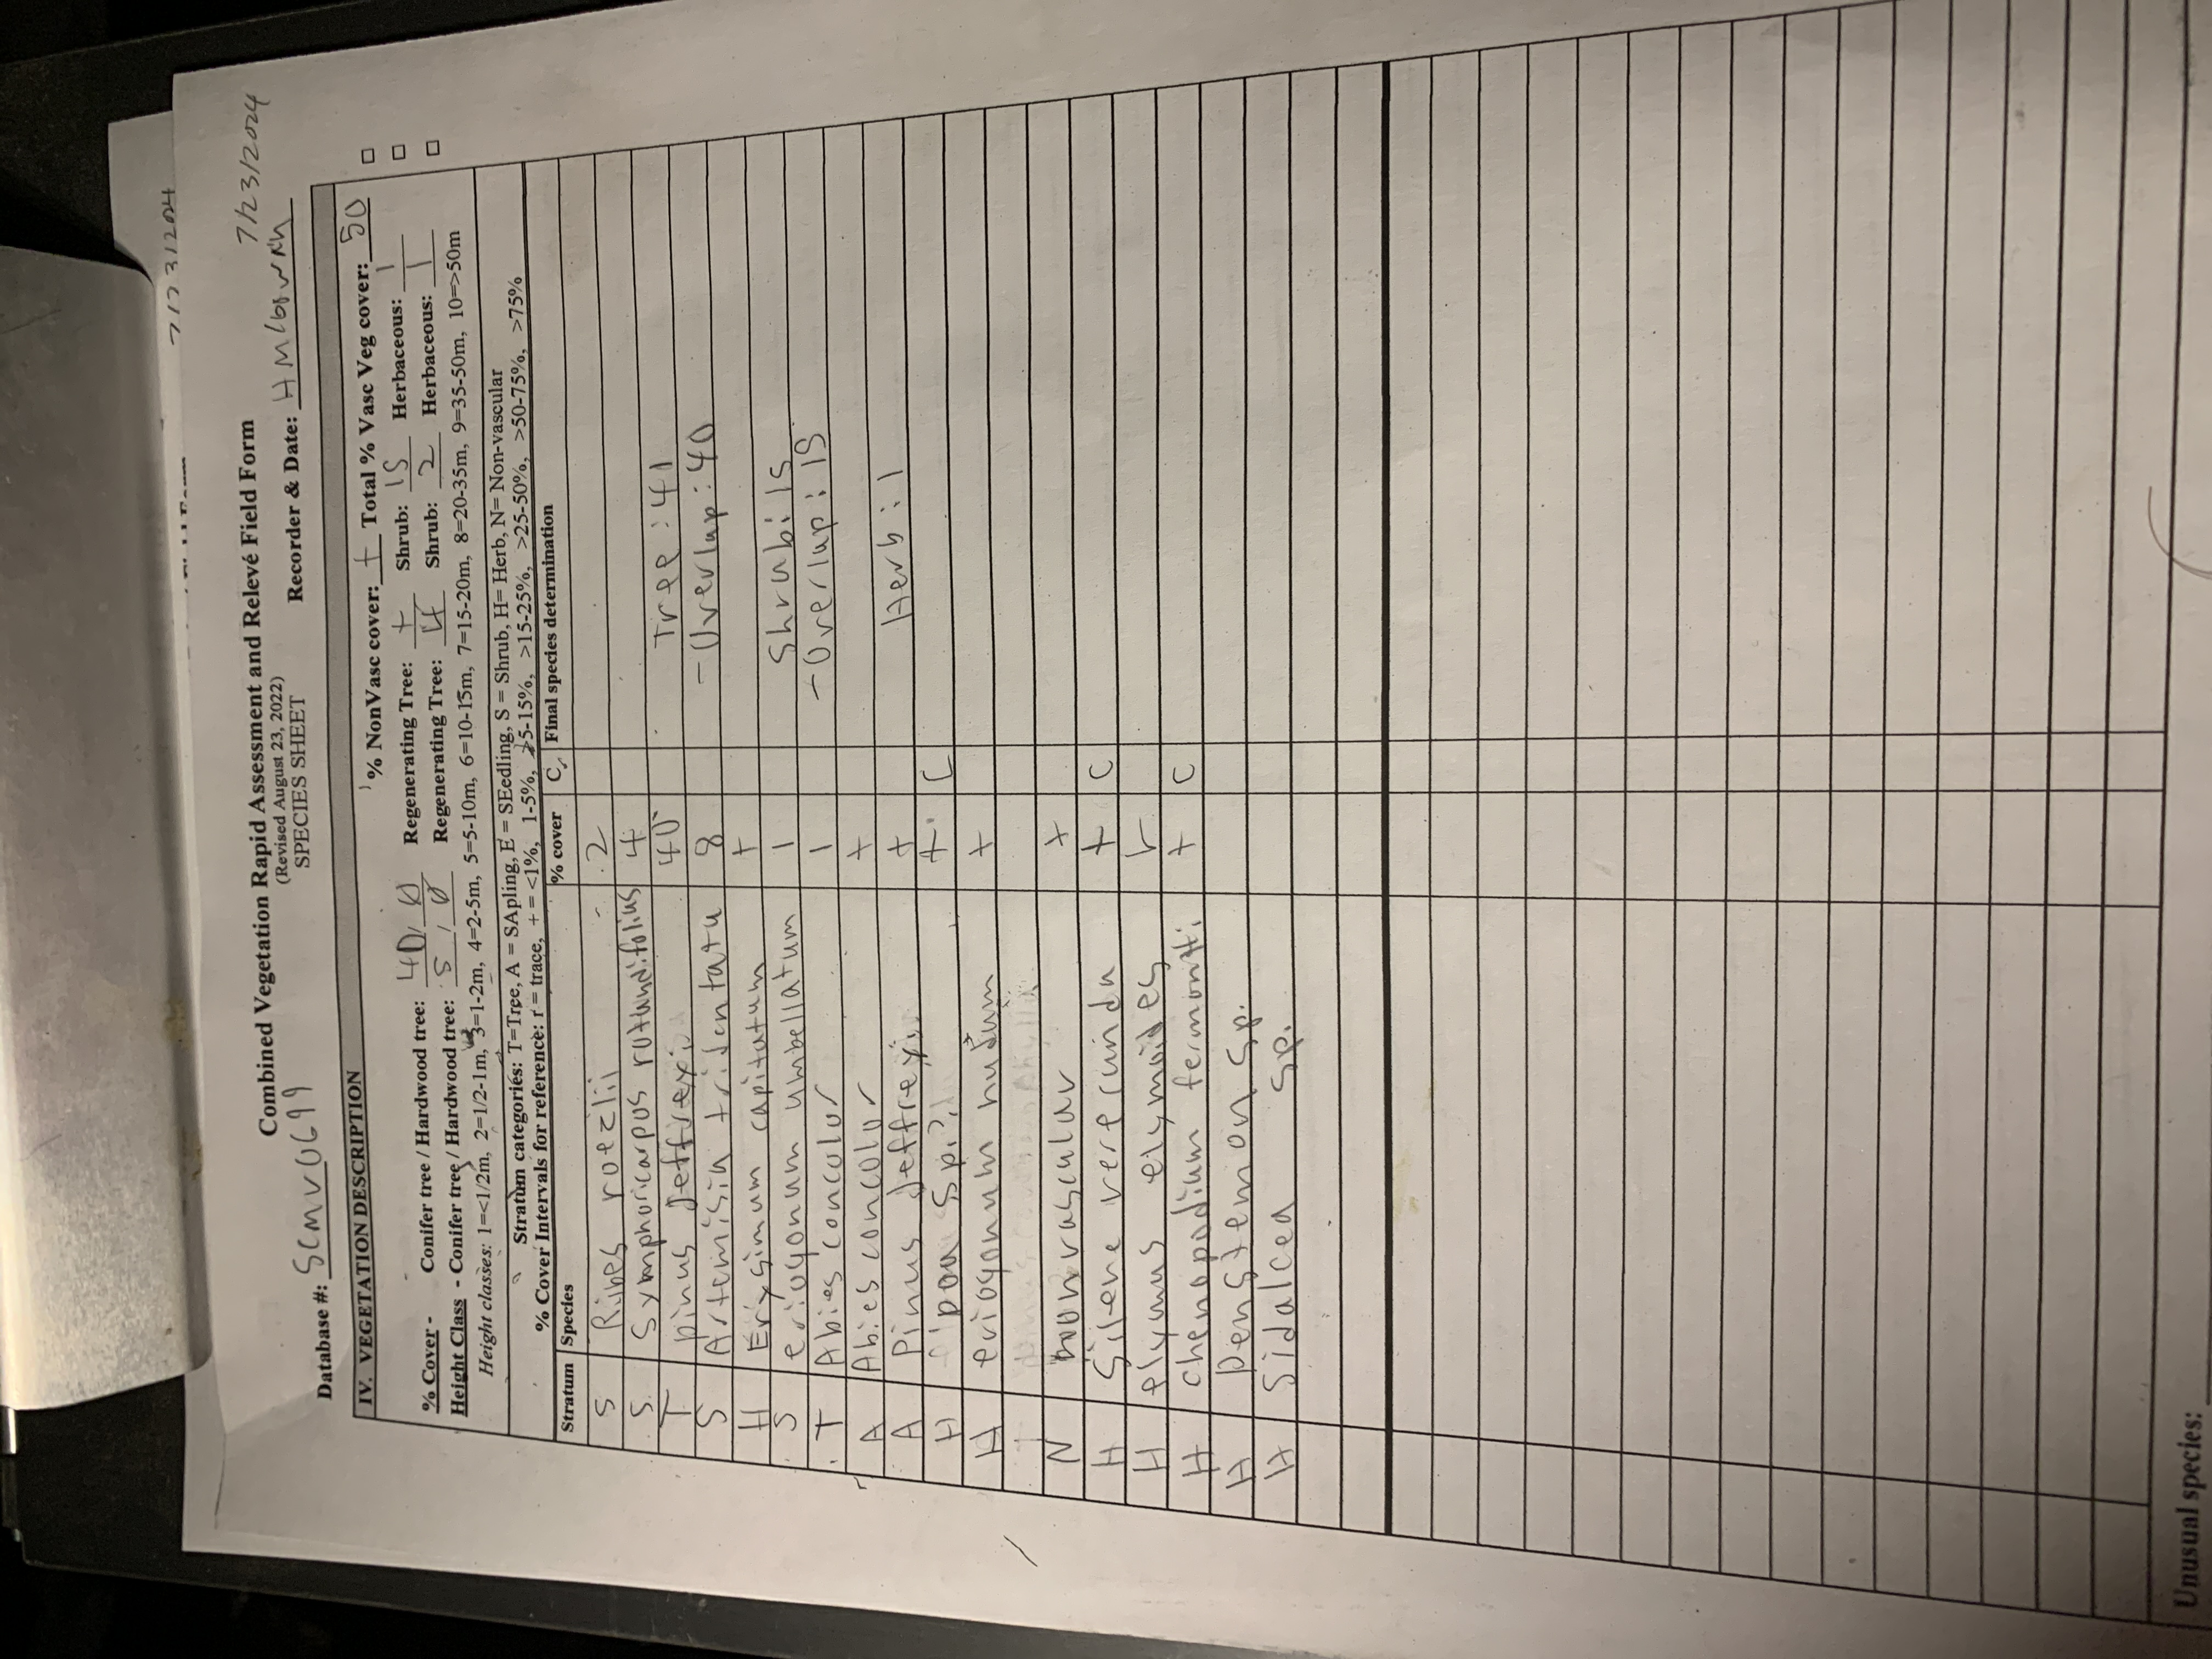 7/23/2024
Combined Vegetation Rapid Assessment and Relevé Field Form
(Revised August 23, 2022)
SPECIES SHEET
7/23/2024
Database #: SCMV0699 Recorder & Date:
IV. VEGETATION DESCRIPTION
% NonVasc cover: + Total % Vasc Veg cover: 50
% Cover - Conifer tree / Hardwood tree: 40 / 0 Regenerating Tree: + Shrub: 15 Herbaceous: 1
Height Class - Conifer tree / Hardwood tree: 5 / 0 Regenerating Tree: 4 Shrub: 2 Herbaceous: 1
Height classes: 1=<1/2m, 2=1/2-1m, 3=1-2m, 4=2-5m, 5=5-10m, 6=10-15m, 7=15-20m, 8=20-35m, 9=35-50m, 10=>50m
Stratum categories: T=Tree, A = SApling, E = SEedling, S = Shrub, H= Herb, N= Non-vascular
% Cover Intervals for reference: r = trace, + = <1%, 1-5%, >5-15%, >15-25%, >25-50%, >50-75%, >75%
Stratum Species % cover C Final species determination
S Ribes roezlii 2
S Symphoricarpos rotundifolius 4
T pinus Jeffreyi 40 Tree: 41
S Artemisia tridentata 8 - Overlap: 40
H Erysimum capitatum +
S eriogonum umbellatum 1 Shrub: 15
T Abies concolor 1 - Overlap: 15
A Abies concolor +
A Pinus Jeffreyi + Herb: 1
H poa sp? + C
H eriogonum nudum +
N nonvascular +
H Silene verecunda + C
H elymus elymoides r
H chenopodium fermontii + C
H penstemon sp.
H Sidalcea sp.
Unusual species: